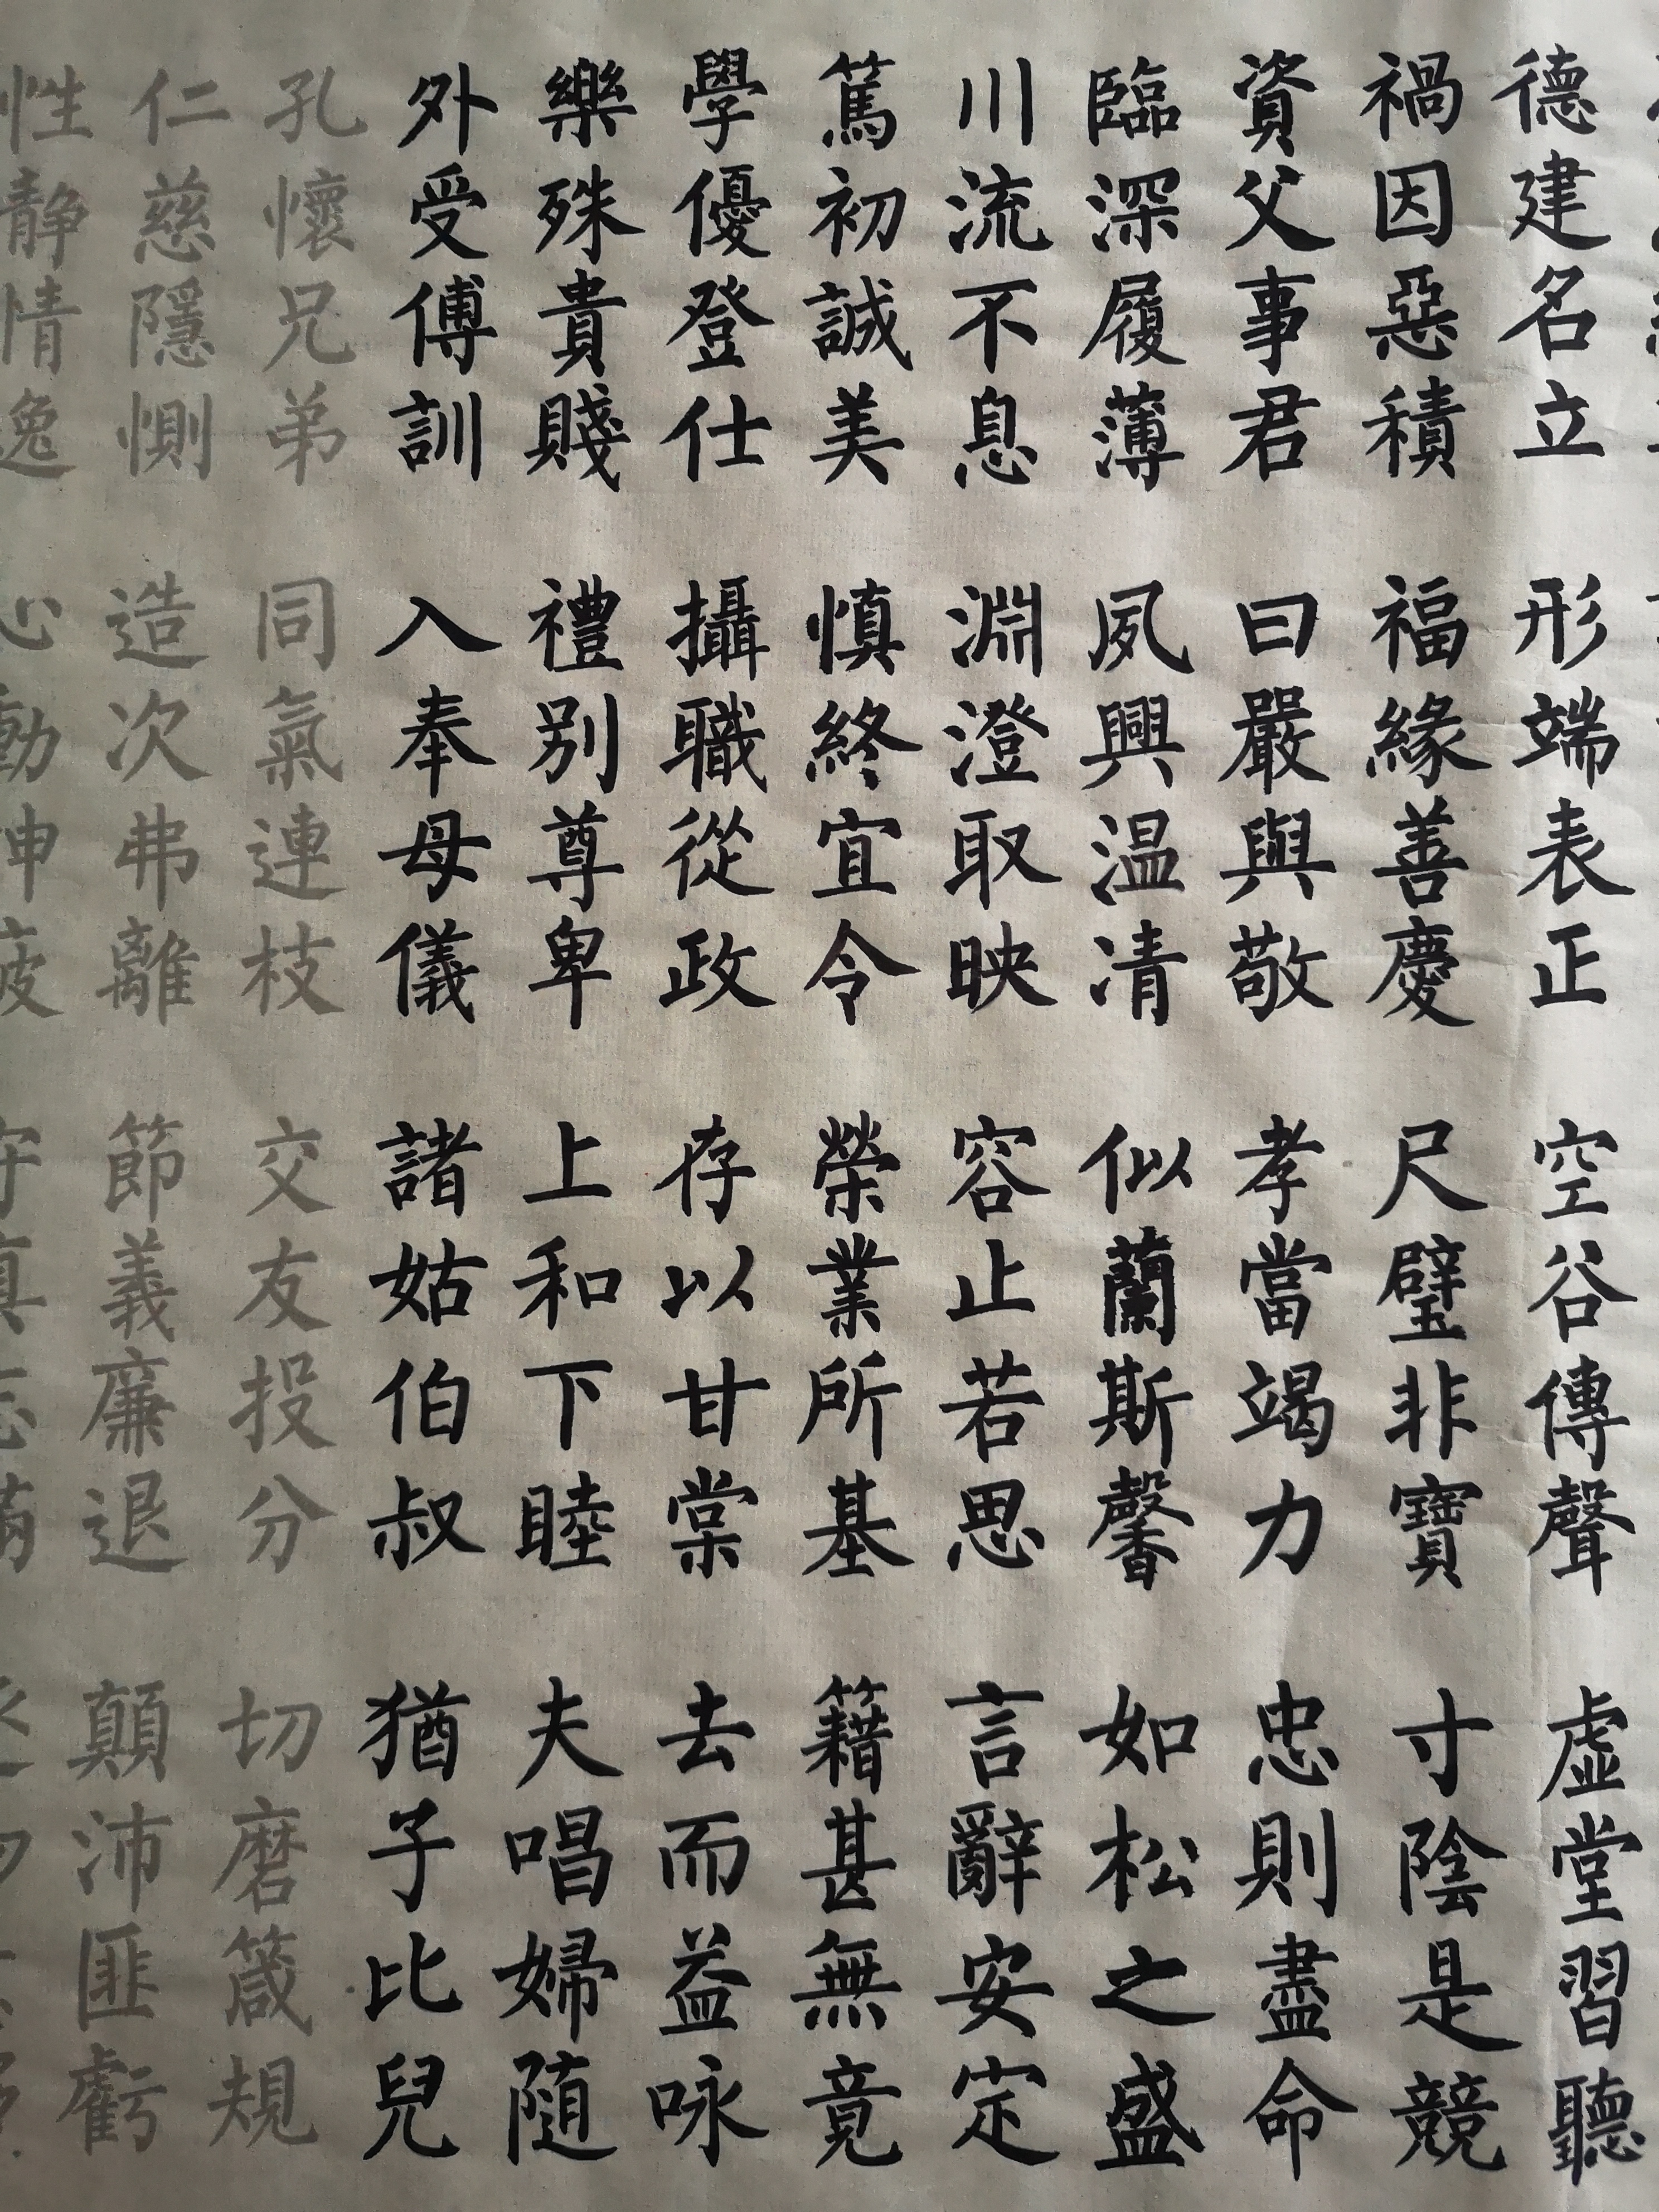 德建名立 形端表正 空谷傳聲 虛堂習聽
禍因惡積 福緣善慶 尺璧非寶 寸陰是競
資父事君 曰嚴與敬 孝當竭力 忠則盡命
臨深履薄 夙興温清 似蘭斯馨 如松之盛
川流不息 淵澄取映 容止若思 言辭安定
篤初誠美 慎終宜令 榮業所基 籍甚無竟
學優登仕 攝職從政 存以甘棠 去而益咏
樂殊貴賤 禮别尊卑 上和下睦 夫唱婦随
外受傅訓 入奉母儀 諸姑伯叔 猶子比兒
孔懷兄弟 同氣連枝 交友投分 切磨箴規
仁慈隱惻 造次弗離 節義廉退 顛沛匪虧
性静情逸 心動神疲